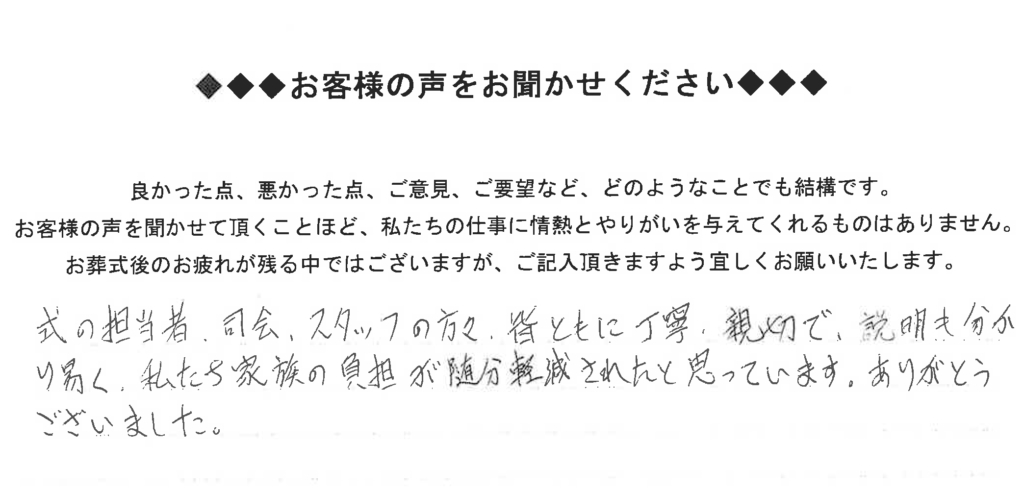 ◆◆◆お客様の声をお聞かせください◆◆◆
良かった点、悪かった点、ご意見、ご要望など、どのようなことでも結構です。
お客様の声を聞かせて頂くことほど、私たちの仕事に情熱とやりがいを与えてくれるものはありません。
お葬式後のお疲れが残る中ではございますが、ご記入頂きますよう宜しくお願いいたします。
式の担当者、司会、スタッフの方々、皆ともに丁寧、親切で、説明も分か
り易く、私たち家族の負担が随分軽減されたと思っています。ありがとう
ございました。